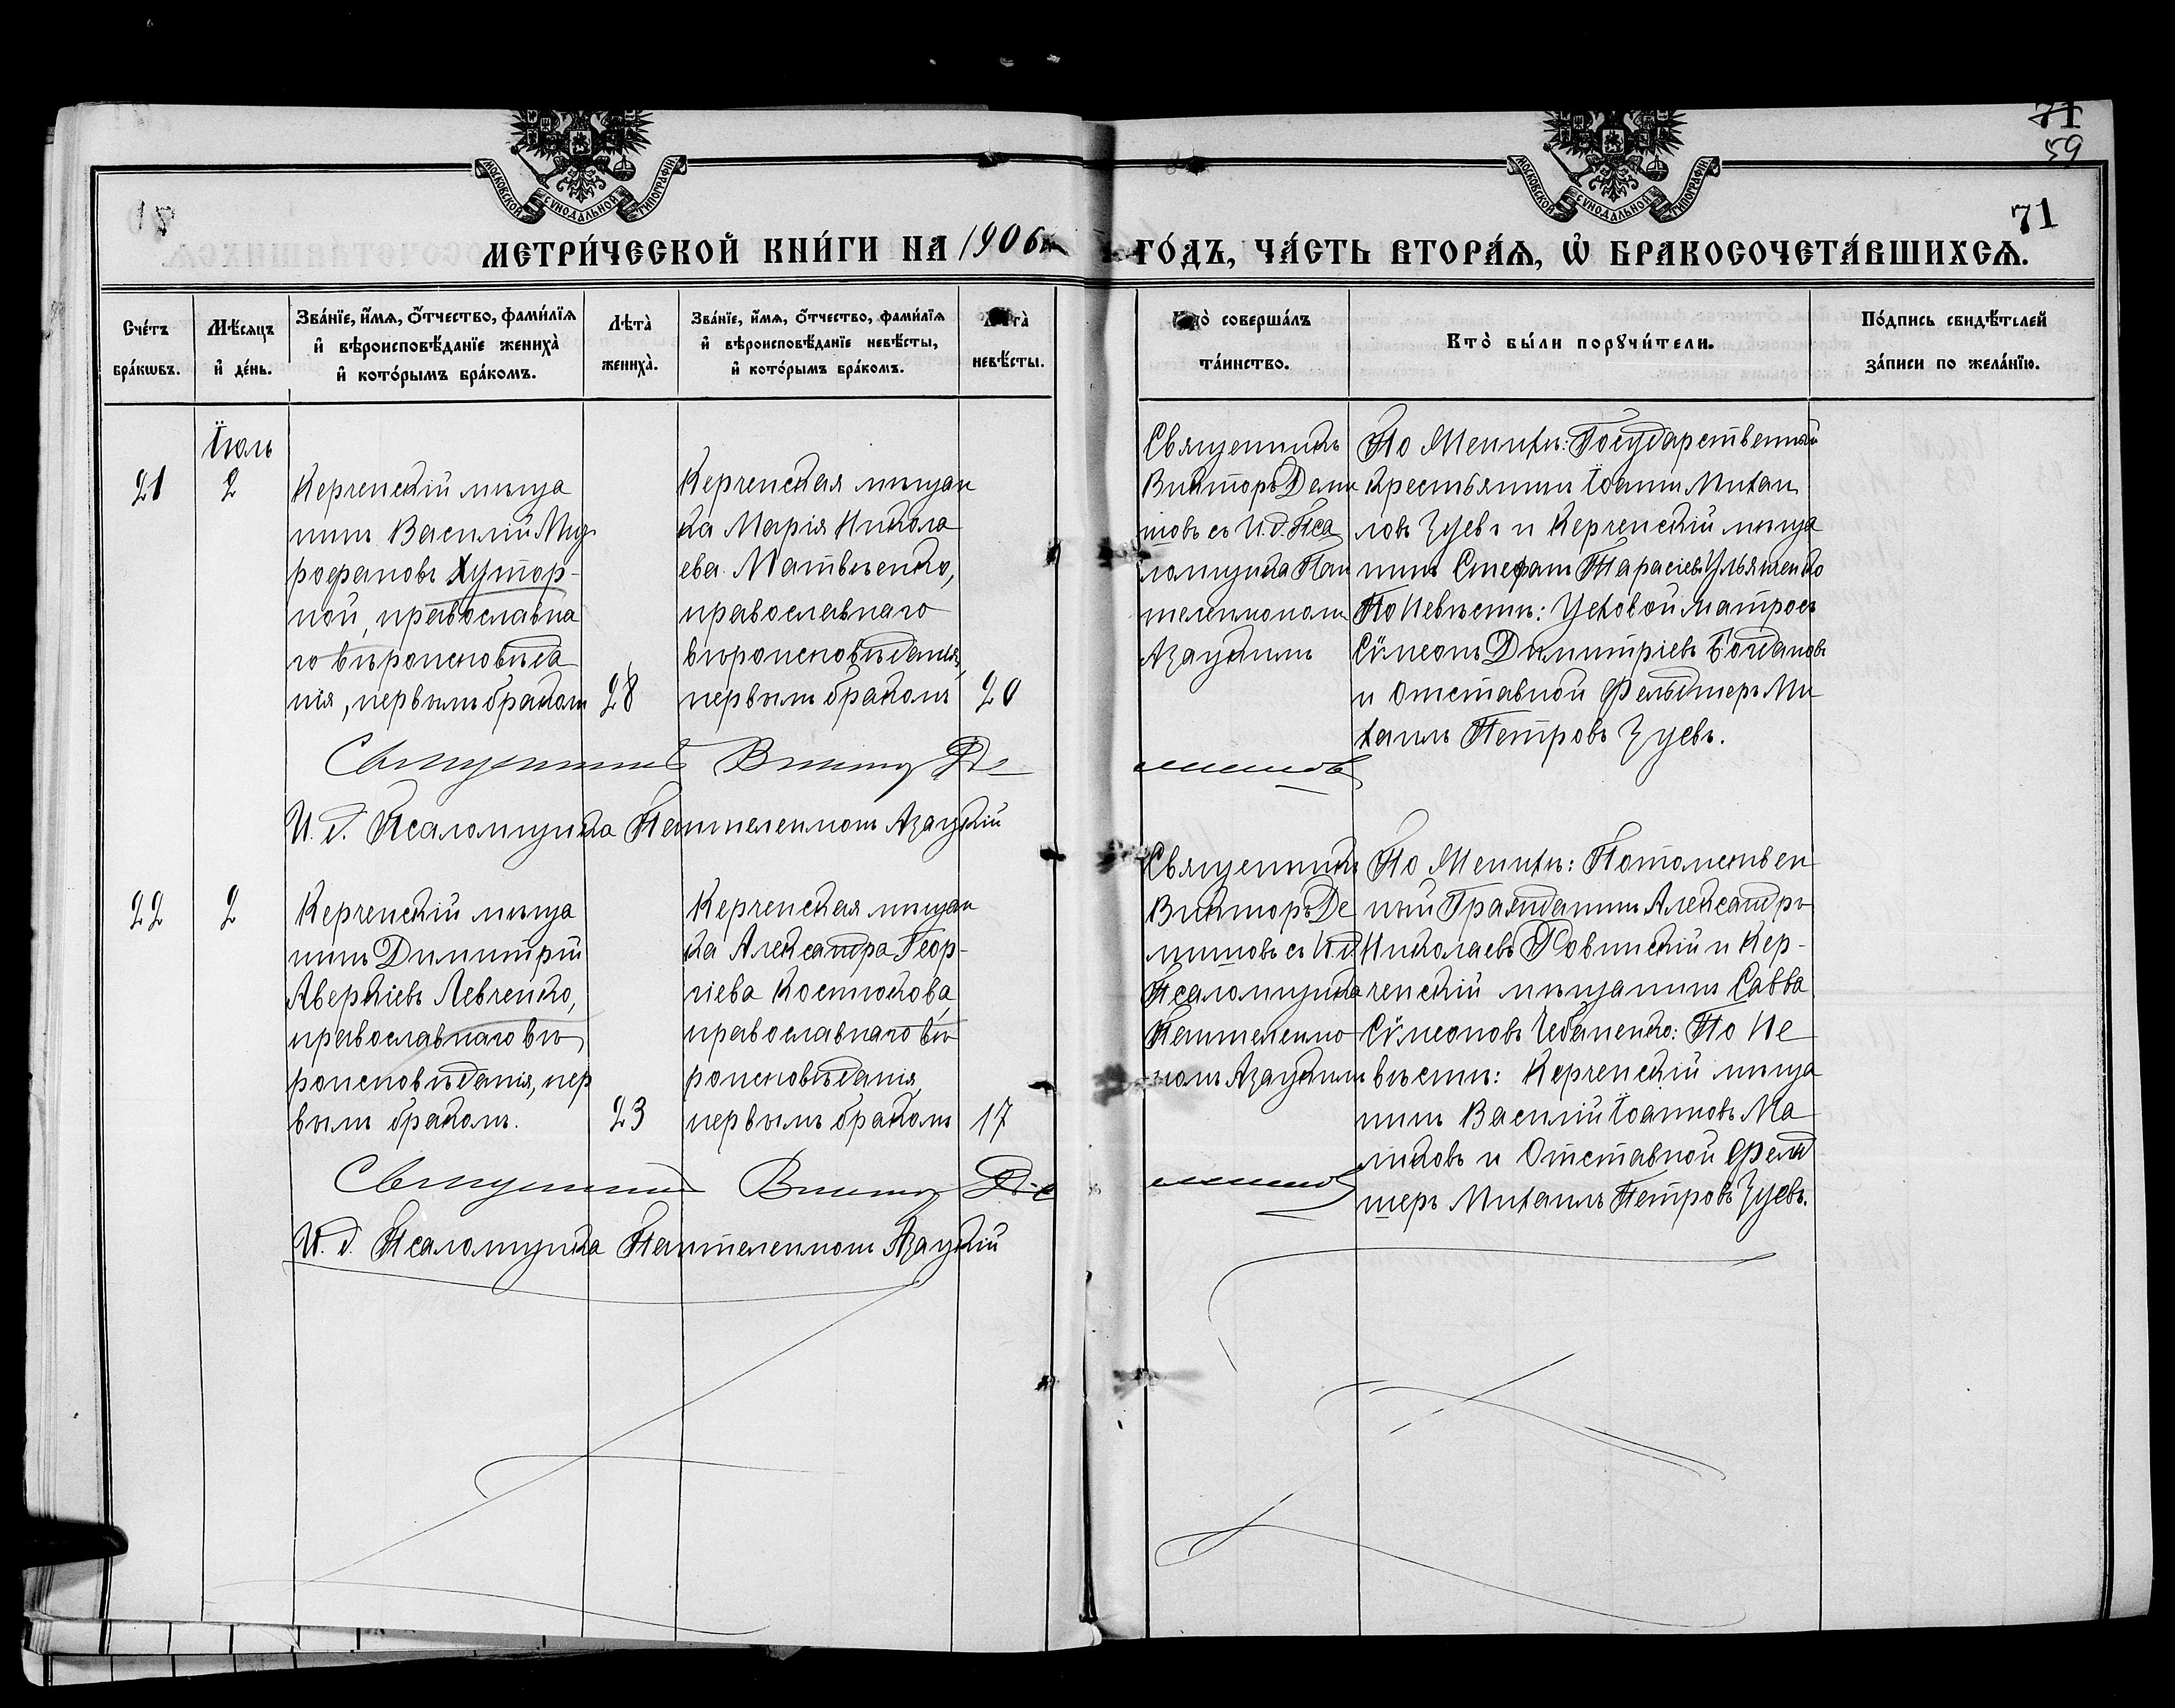 71
59
71
МОСКОВСКОЙ СѴНОДАЛЬНОЙ ТИПОГРАФІИ
МОСКОВСКОЙ СѴНОДАЛЬНОЙ ТИПОГРАФІИ
МЕТРИ́ЧЕСКОЙ КНИ́ГИ НА 1906й ГО́ДЪ, ЧА́СТЬ ВТОРА́Ѧ, Ѽ БРАКОСОЧЕТА́ВШИХСѦ.
Сче́тъ
бра́кѡвъ.
Мѣ́сѧцъ
и҆ де́нь.
Зва́нїе, и҆́мѧ, ѻ҆́тчество, фами́лїѧ
и҆ вѣроисповѣ́данїе жениха̀
и҆ кото́рымъ бра́комъ.
Лѣта̀
жениха̀.
Зва́нїе, и҆́мѧ, ѻ҆́тчество, фами́лїѧ
и҆ вѣроисповѣ́данїе невѣ́сты,
и҆ кото́рымъ бра́комъ.
Лѣта̀
невѣ́сты.
Кто̀ соверша́лъ
та́инство.
Кто̀ бы́ли порꙋчи́тели.
По́дпись свидѣ́телей
за́писи по жела́нїю.
Їюль
21
2
Керченскій мѣща
нинъ Василій Мит
рофановъ Хутор-
ной, православна
го вѣроисповѣда
нія, первымъ бракомъ
28
Керченская мѣщан
ка Марія Никола
ева Матвѣенко,
православнаго
вѣроисповѣданія,
первымъ бракомъ
20
Священникъ
Викторъ Деми
товъ съ И. д. Пса
ломщика Пан
телеимономъ
Азацкимъ
По Женихѣ: Государственный
крестьянинъ Їоаннъ Михаи
ловъ Зуевъ и Керченскій мѣща
нинъ Стефанъ Тарасіевъ Ульяненко
По Невѣстѣ: Цеховой матросъ
Сѷмеонъ Димитріевъ Богдановъ
и Отставной Фельдшеръ Ми
хаилъ Петровъ Зуевъ.
Священникъ Викторъ Демитовъ
И. д. Псаломщика Пантелеимонъ Азацкій
22
2
Керченскій мѣща
нинъ Димитрій
Аверкіевъ Левченко,
православнаго вѣ
роисповѣданія, пер
вымъ бракомъ.
23
Керченская мѣщан
ка Александра Геор-
гіева Костюкова,
православнаго вѣ
роисповѣданія,
первымъ бракомъ
17
Священникъ
Викторъ Де
митовъ съ И. д.
Псаломщика
Пантелеимо
номъ Азацкимъ
По Женихѣ: Потомствен
ный Гражданинъ Александръ
Николаевъ Ровинскій и Кер-
ченскій мѣщанинъ Савва
Сѷмеоновъ Чебаненко: По Не
вѣстѣ: Керченскій мѣща
нинъ Василій Їоанновъ Ма
ликовъ и Отставной Фельд
шеръ Михаилъ Петровъ Зуевъ.
Священникъ Викторъ Демитовъ
И. д. Псаломщика Пантелеимонъ Азацкій